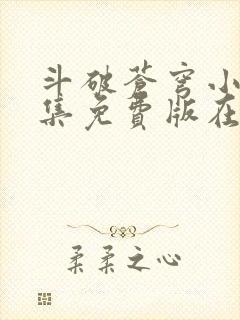 斗破苍穹小
集免費版在
柔柔之心